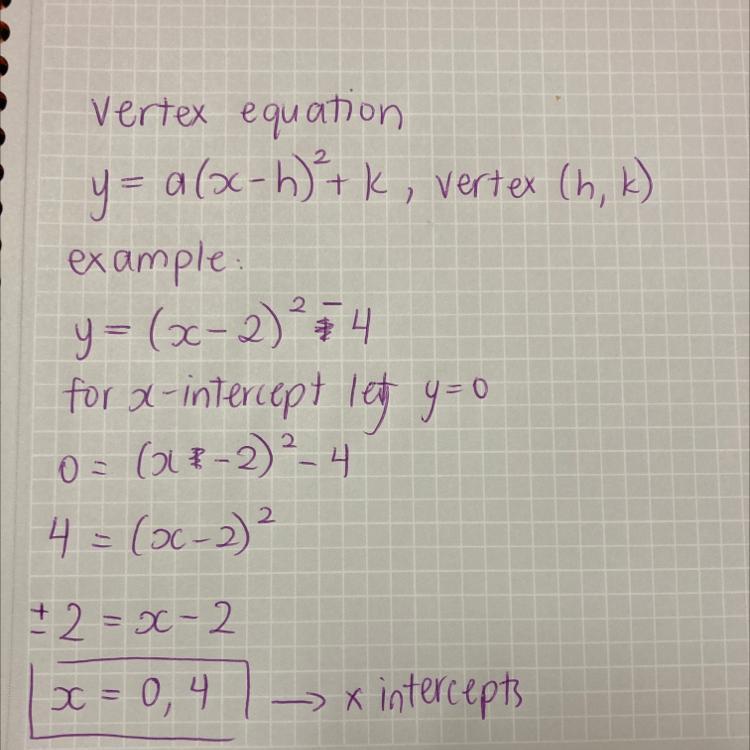 vertex equation
y = a(x-h)² + k, vertex (h, k)
example:
y = (x-2)² - 4
for x-intercept let y=0
0 = (x -2)² - 4
4 = (x-2)²
± 2 = x - 2
x = 0, 4 → x intercepts